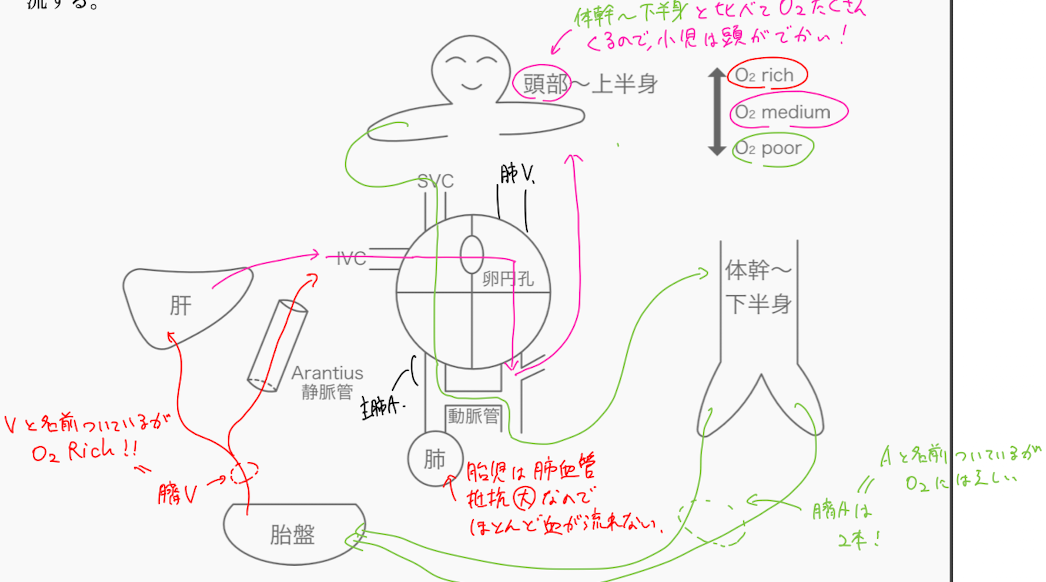 流する。
体幹〜下半身と比べてO₂たくさん
くるので、小児は頭がでかい!
頭部〜上半身
O₂ rich
O₂ medium
O₂ poor
SVC
肺V.
IVC
卵円孔
体幹〜
下半身
肝
Arantius
静脈管
主肺A.
動脈管
Vと名前ついているが
O₂ Rich!!
臍V
肺
胎児は肺血管
抵抗大なので
ほとんど血が流れない.
Aと名前ついているが
O₂には乏しい
臍Aは
2本!
胎盤